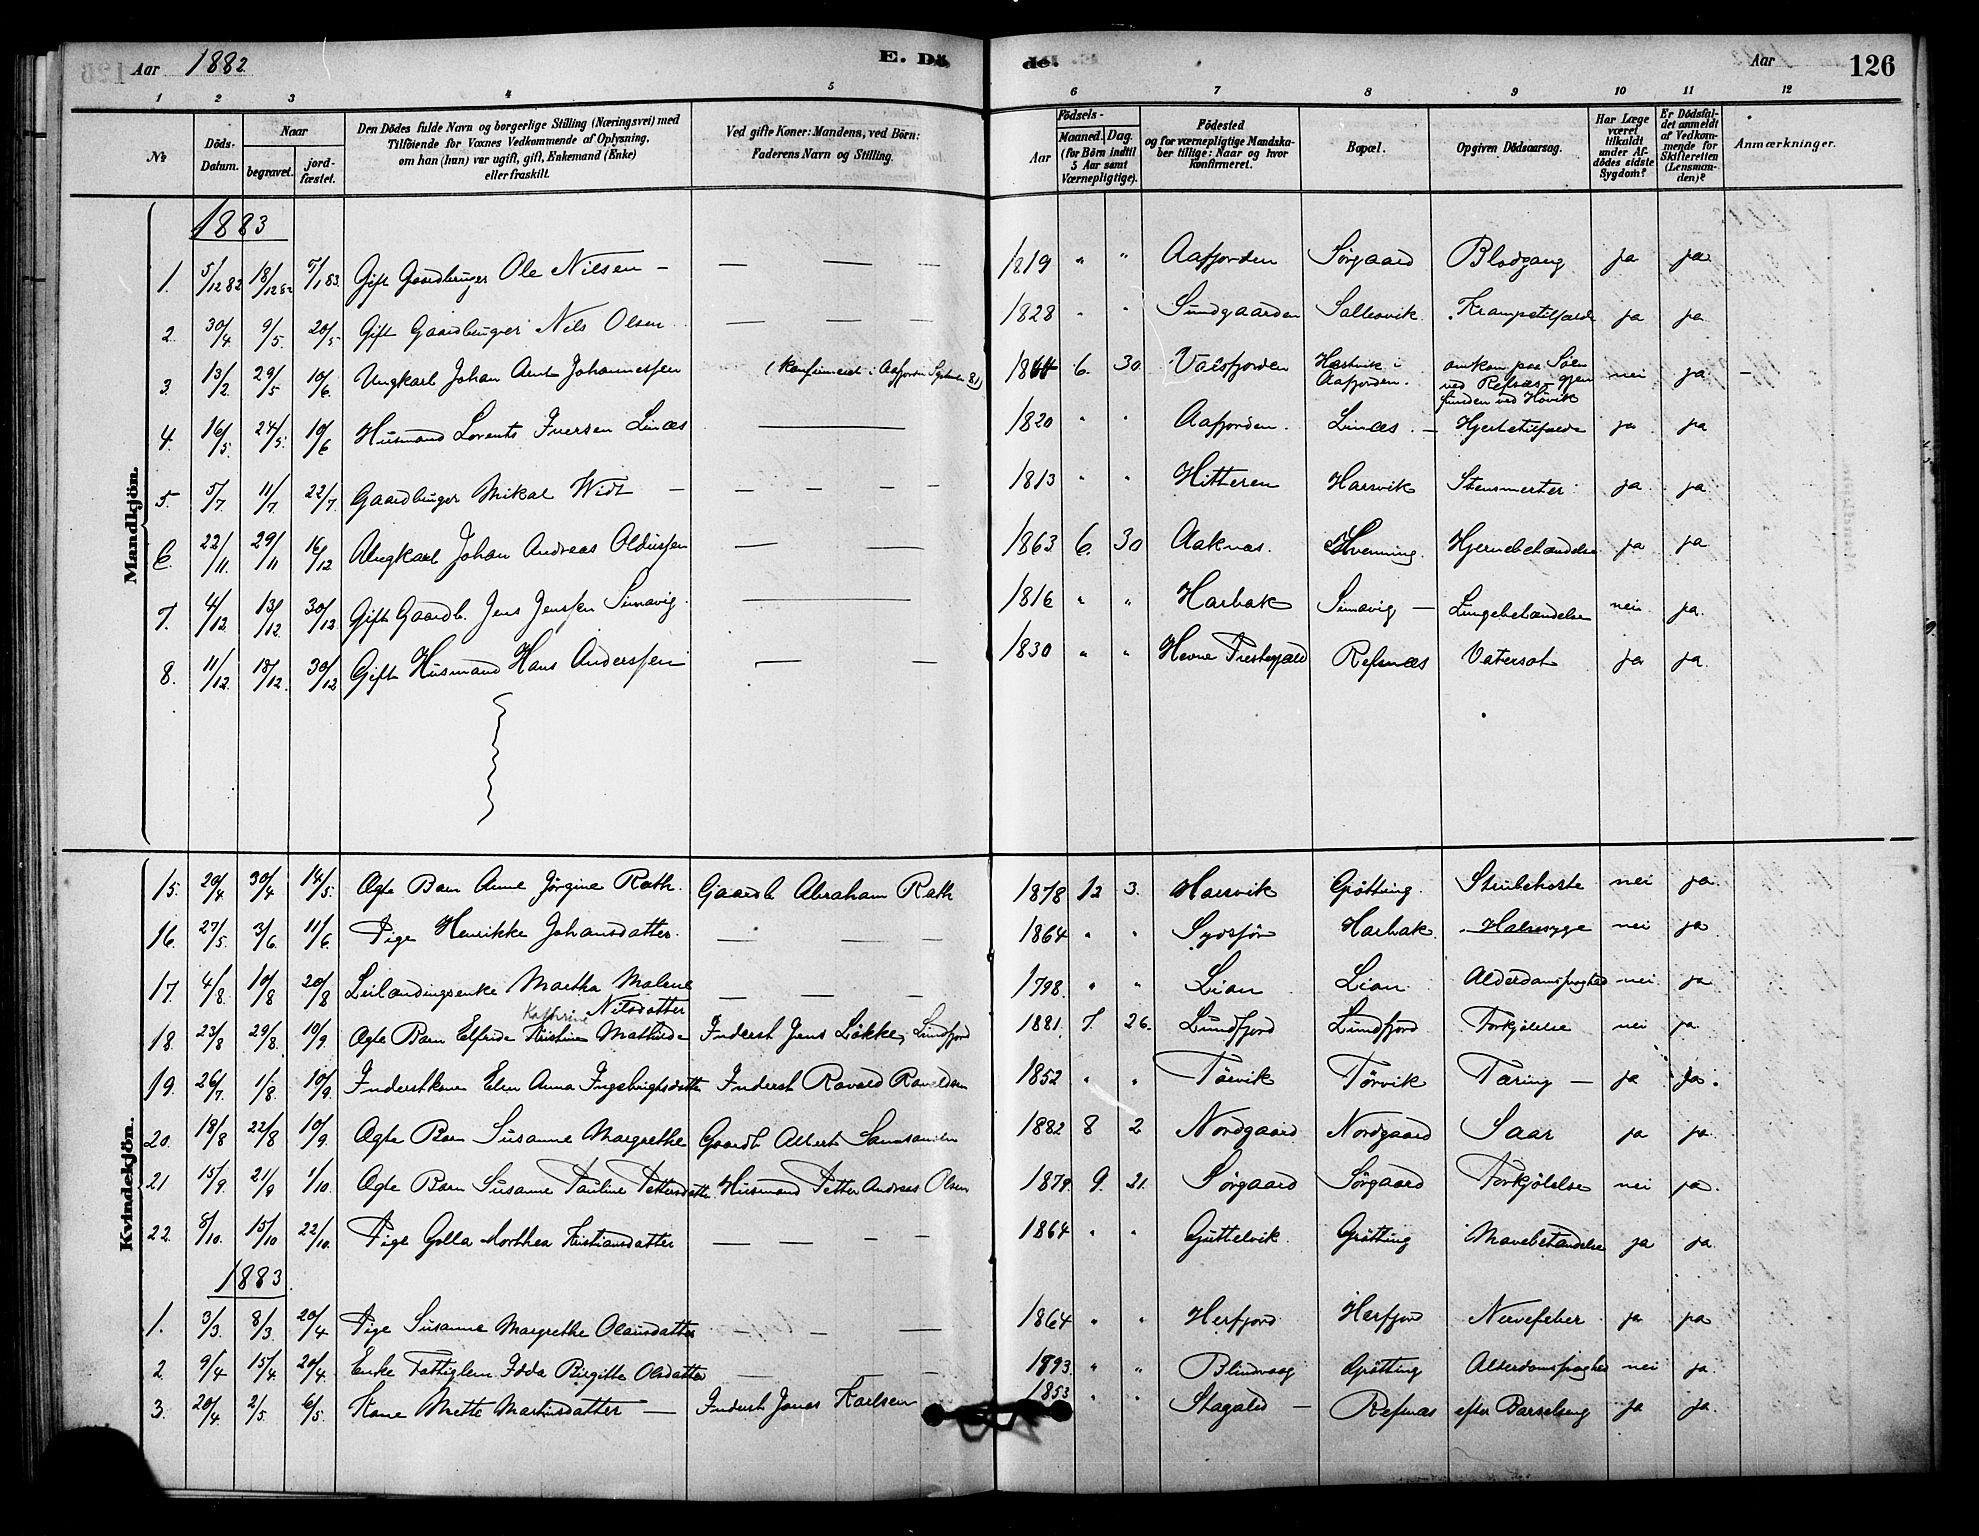 Aar 1882
E. Dö
de.
Aar
126
1 2 3 4 5 6 7 8 9 10 11 12
No
Döds-Datum.
Naar
begravet.
jordfæstet.
Den Dödes fulde Navn og borgerlige Stilling (Næringsvei) med
Tilföiende for Voxnes Vedkommende af Oplysning,
om han (hun) var ugift, gift, Enkemand (Enke)
eller fraskilt.
Ved gifte Koner: Mandens, ved Börn:
Faderens Navn og Stilling.
Födsels-
Aar
Maaned. Dag.
(for Börn indtil
5 Aar samt
Værnepligtige).
Födested
og for værnepligtige Mandskaber tillige: Naar og hvor
Konfirmeret.
Bopæl.
Opgiven Dödsaarsag.
Har Læge været tilkaldt under Afdödes sidste Sygdom?
Er Dödsfaldet anmeldt af Vedkommende for Skifteretten (Lensmanden)?
Anmærkninger.
Mandkjön.
1883
1. 5/12 82 18/12 82 7/1 83. Gift Gaardbruger Ole Nilsen — — — — 1819 " " Aafjorden Sørgaard Blodgang ja ja
2. 30/4 9/5. 20/5 Gift Gaardbruger Nils Olsen — — — 1828 " " Sundgaarden Sallesvik Krampetilfælde ja ja
3. 13/2 29/5 10/6. Ungkarl Johan Arnt Johannessen (Konfirmeret i Aafjorden Septemb. 81) 6. 30 Valsfjorden Hastvik i Aafjorden. omkom paa Søen ved Refsnes – gjenfunden ved Hövik nei ja —
4. 16/5. 24/5 10/6 Husmand Lorents Iversen Linæs — 1820 " " Aafjorden. Linæs — Hjertetilfælde ja ja
5. 5/7. 11/7 22/7 Gaardbruger Mikal Widt — — — — — 1813 " " Hitteren Harsvik Stensmerter ja ja.
6. 22/11. 29/11 16/12 Ungkarl Johan Andreas Oldussen — — 1863 6. 30 Aaknæs. Hvenning. Hjernebetændelse ja ja
7. 4/12 13/12. 30/12 Gift Gaardb. Jens Jenssen Simavig. — 1816 " " Harbak Simavig — Lungebetændelse nei ja.
8. 11/12. 18/12. 30/12 Gift Husmand Hans Anderssen — — 1830 " " Hevne Prestegjæld Refsnæs Vatersot ja ja.
Kvindekjön.
15. 20/4 30/4 14/5. Ægte Barn Anne Jörgine Rath. Gaardb. Abraham Rath 1878 12 3. Harsvik Grøtting. Strubehoste nei ja.
16. 27/5. 3/6. 11/6 Pige Henrikke Johansdatter. — — — 1864 " " Sydsjön Harbak. Halssyge nei ja
17. 4/8. 10/8 20/8 Leilændingsenke Martha Malene Nilsdatter — — — 1798. " " Lian Lian Alderdomssvaghed nei ja
18. 23/8 29/8. 10/9. Ægte Barn Elfride Kathrine Kristine Mathilde Inderst Jens Løkke, Lundfjord 1881. 7. 26. Lundfjord Lundfjord Forkjølelse nei ja
19. 26/7. 1/8. 10/9. Inderstkone Elen Anna Ingebrigtsdatter Inderst Ravald Ravaldsen 1852 " " Tørvik Tørvik Tæring — ja ja.
20. 18/8 22/8 10/9. Ægte Barn Susanne Margrethe Gaardb. Albert 1882 8 2 Nordgaard Nordgaard Saar ja ja.
21 15/9. 21/9 1/10. Ægte Barn Susanne Pauline Pettersdatter Husmand Petter Andreas Olsen 1879. 9. 21. Sørgaard Sørgaard Forkjølelse nei ja.
22. 8/10. 15/10 22/10. Pige Golla Dorthea Kristiansdatter — — — — 1864 " " Guttelvik. Grøtting Mavebetændelse ja ja.
1883
1. 3/3. 8/3. 20/4 Pige Susanne Margrethe Olausdatter — — — 1864 " " Herfjord Herfjord Nervefeber ja ja
2. 9/4 15/4 20/4 Enke Fattiglem Birgitte Olsdatter — — 1893. " " Blindvaag Grøtting Alderdomssvaghed nei ja.
3. 20/4. 2/5. 6/5. Kone Mette Martinsdatter — Inderst Jonas Karlsen 1853 " " — Refsnæs efter Barselseng ja ja.